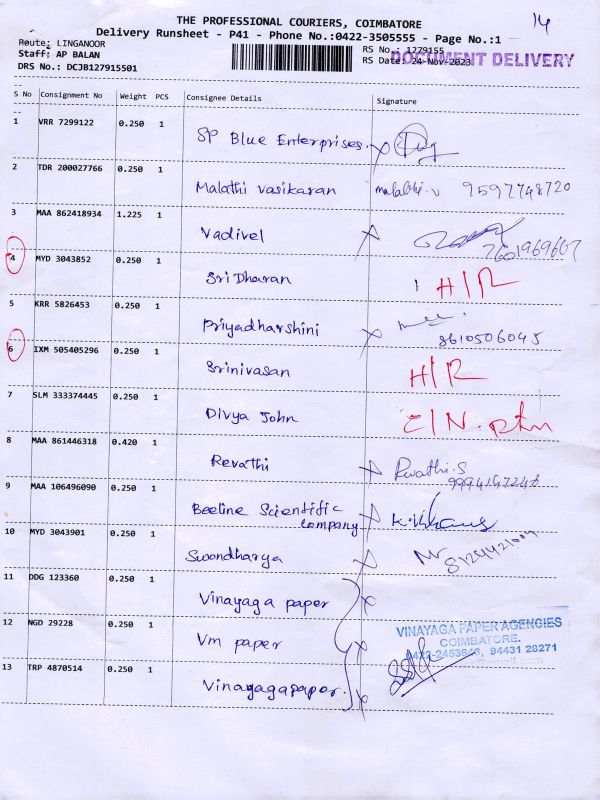 14
THE PROFESSIONAL COURIERS, COIMBATORE
Delivery Runsheet - P41 - Phone No.:0422-3505555 - Page No.:1
Route: LINGANOOR
RS No : 1279155
Staff: AP BALAN
RS Date: 24-Nov-2023
DOCUMENT DELIVERY
DRS No.: DCJB127915501
S No Consignment No Weight PCS Consignee Details Signature
1 VRR 7299122 0.250 1 SP Blue Enterprises.
2 TDR 200027766 0.250 1 Malathi vasikaran malathi.v 9597748720
3 MAA 862418934 1.225 1 Vadivel 7601969667
4 MYD 3043852 0.250 1 Sri Dharan H/R
5 KRR 5826453 0.250 1 Priyadharshini 8610506045
6 IXM 505405296 0.250 1 Srinivasan H/R
7 SLM 333374445 0.250 1 Divya John
8 MAA 861446318 0.420 1 Revathi Revathi.S
9 MAA 106496090 0.250 1 Beeline Scientific Company
10 MYD 3043901 0.250 1 Swondharya
11 DDG 123360 0.250 1 Vinayaga paper
12 NGD 29228 0.250 1 Vm paper
VINAYAGA PAPER AGENCIES
COIMBATORE.
0422-2453646, 94431 28271
13 TRP 4870514 0.250 1 Vinayagapaper.